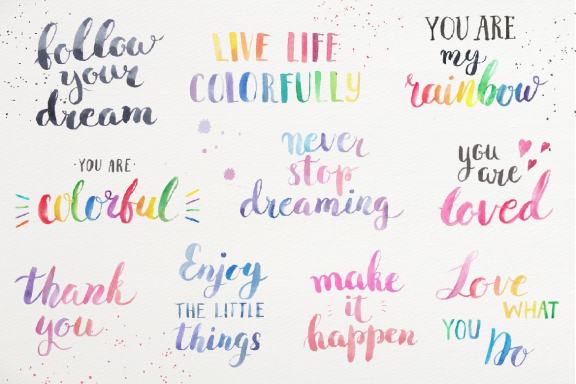 follow
your
dream
LIVE LIFE
COLORFULLY
YOU ARE
my
rainbow
· YOU ARE ·
colorful
never
stop
dreaming
you
are
loved
thank
you
Enjoy
THE LITTLE
things
make
it
happen
Love
WHAT
YOU
Do